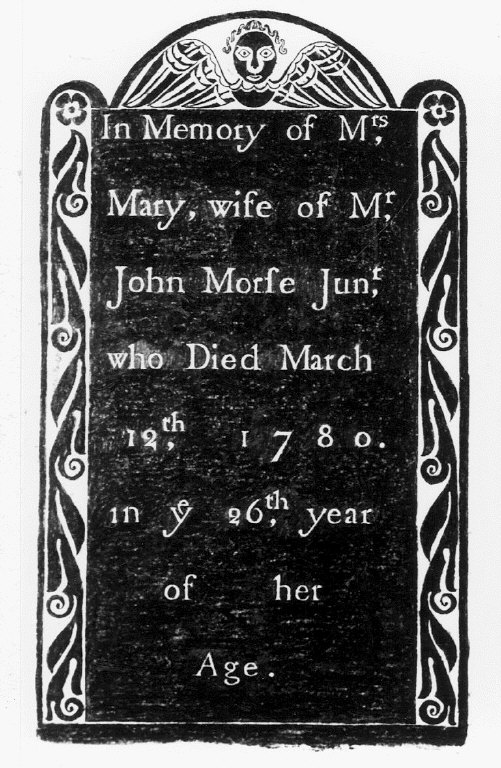 In Memory of Mʳˢ,
Mary, wiſe of Mʳ,
John Morſe Junʳ,
who Died March
12ᵗʰ, 1780.
in yᵉ 26ᵗʰ, year
of her
Age.